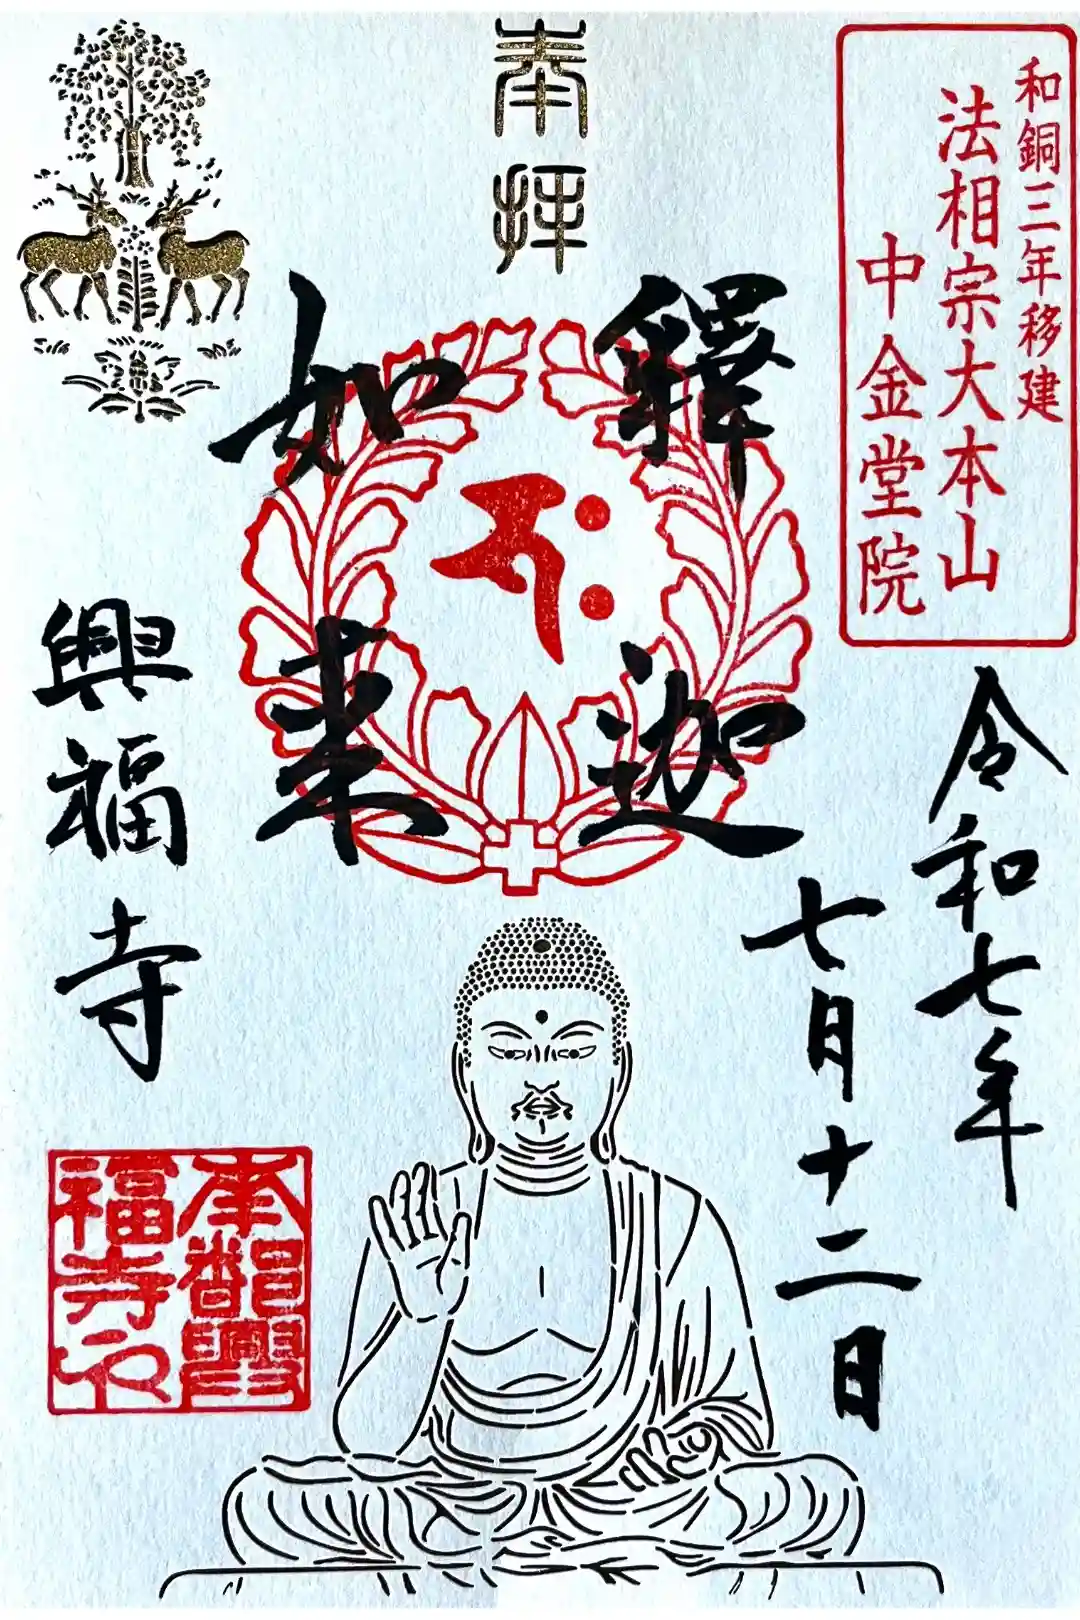 奉拝
和銅三年移建
法相宗大本山
中金堂院
令和七年
七月十二日
釋迦
如来
興福寺
南都興
福寺之